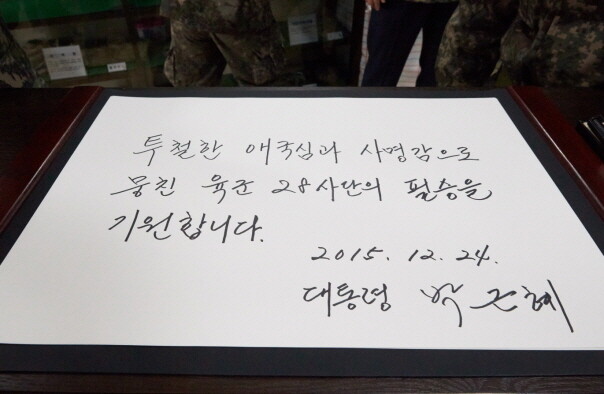 투철한 애국심과 사명감으로
뭉친 육군 28사단의 필승을
기원합니다.
2015. 12. 24.
대통령 박근혜